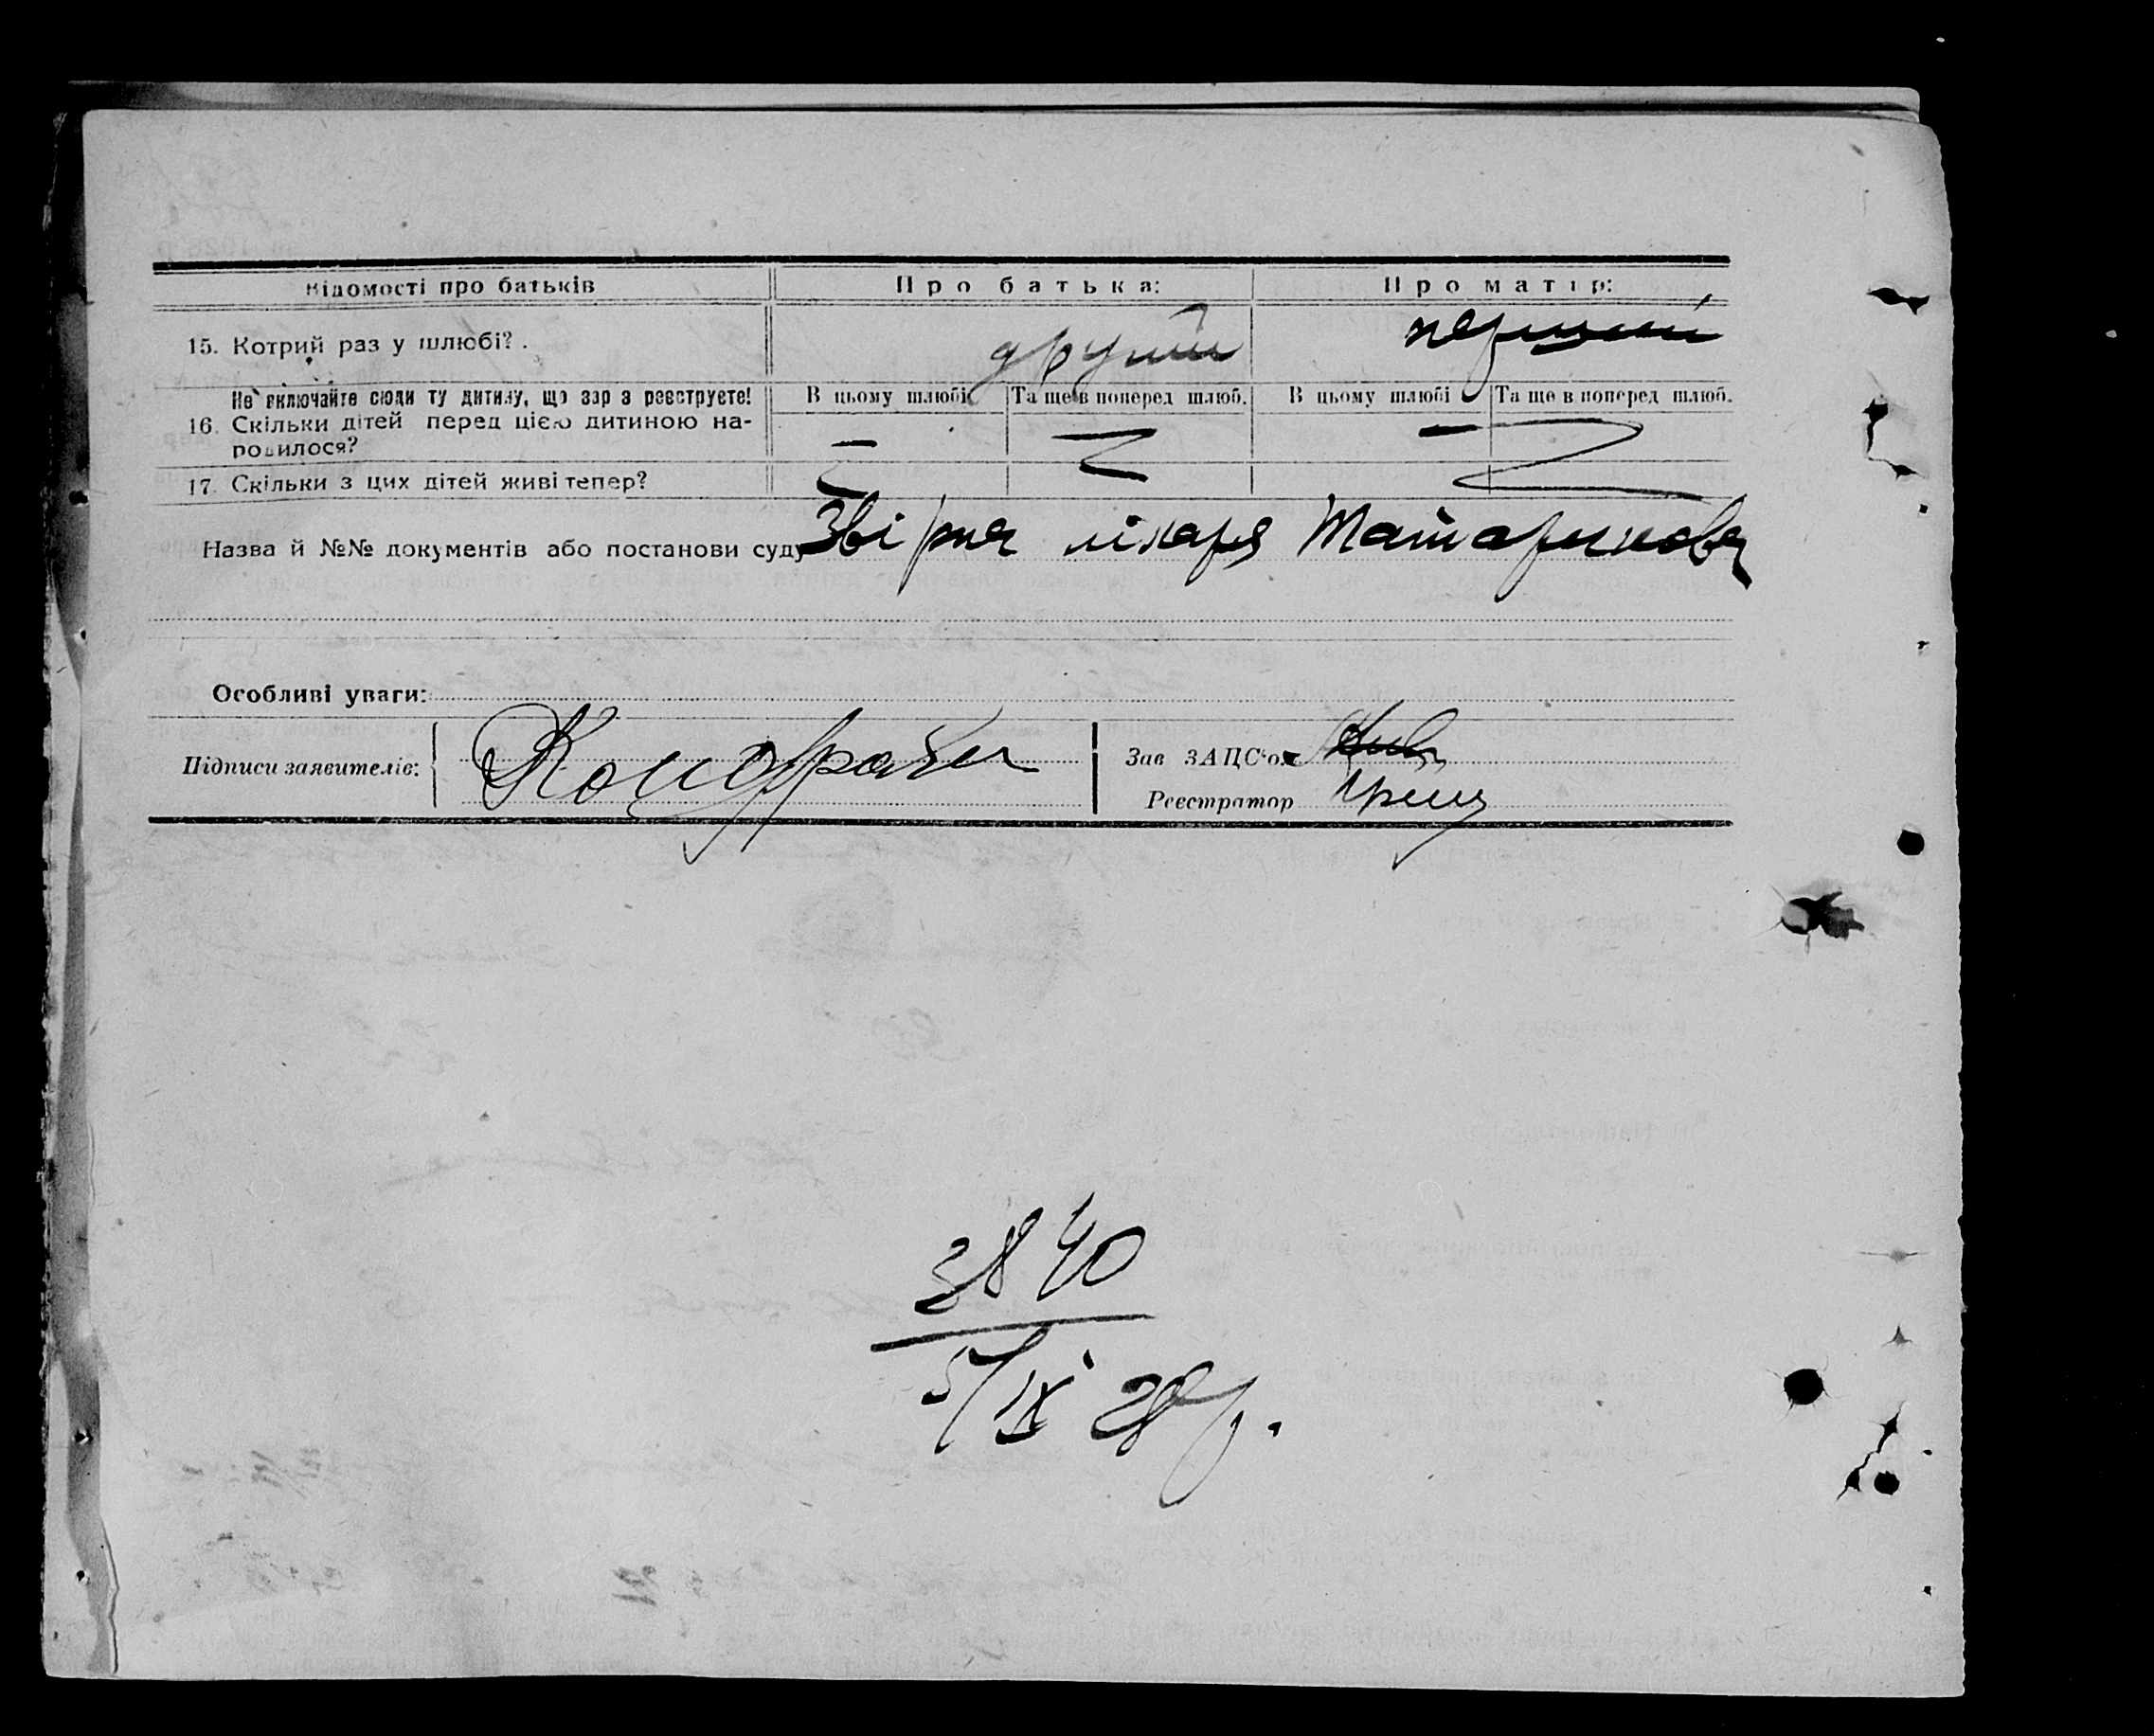 Відомості про батьків Про батька: Про матір:
15. Котрий раз у шлюбі? . другий перший
Не включайте сюди ту дитину, що зар з реєструєте! В цьому шлюбі Та ще в поперед шлюб. В цьому шлюбі Та ще в поперед шлюб.
16. Скільки дітей перед цією дитиною на-
родилося? — —
17. Скільки з цих дітей живі тепер?
Назва й №№ документів або постанови суду Звірка лікаря Татаринова
Особливі уваги:
Підписи заявителів: Зав ЗАЦС'ом
Реєстратор
3840
5/IX 28 р.